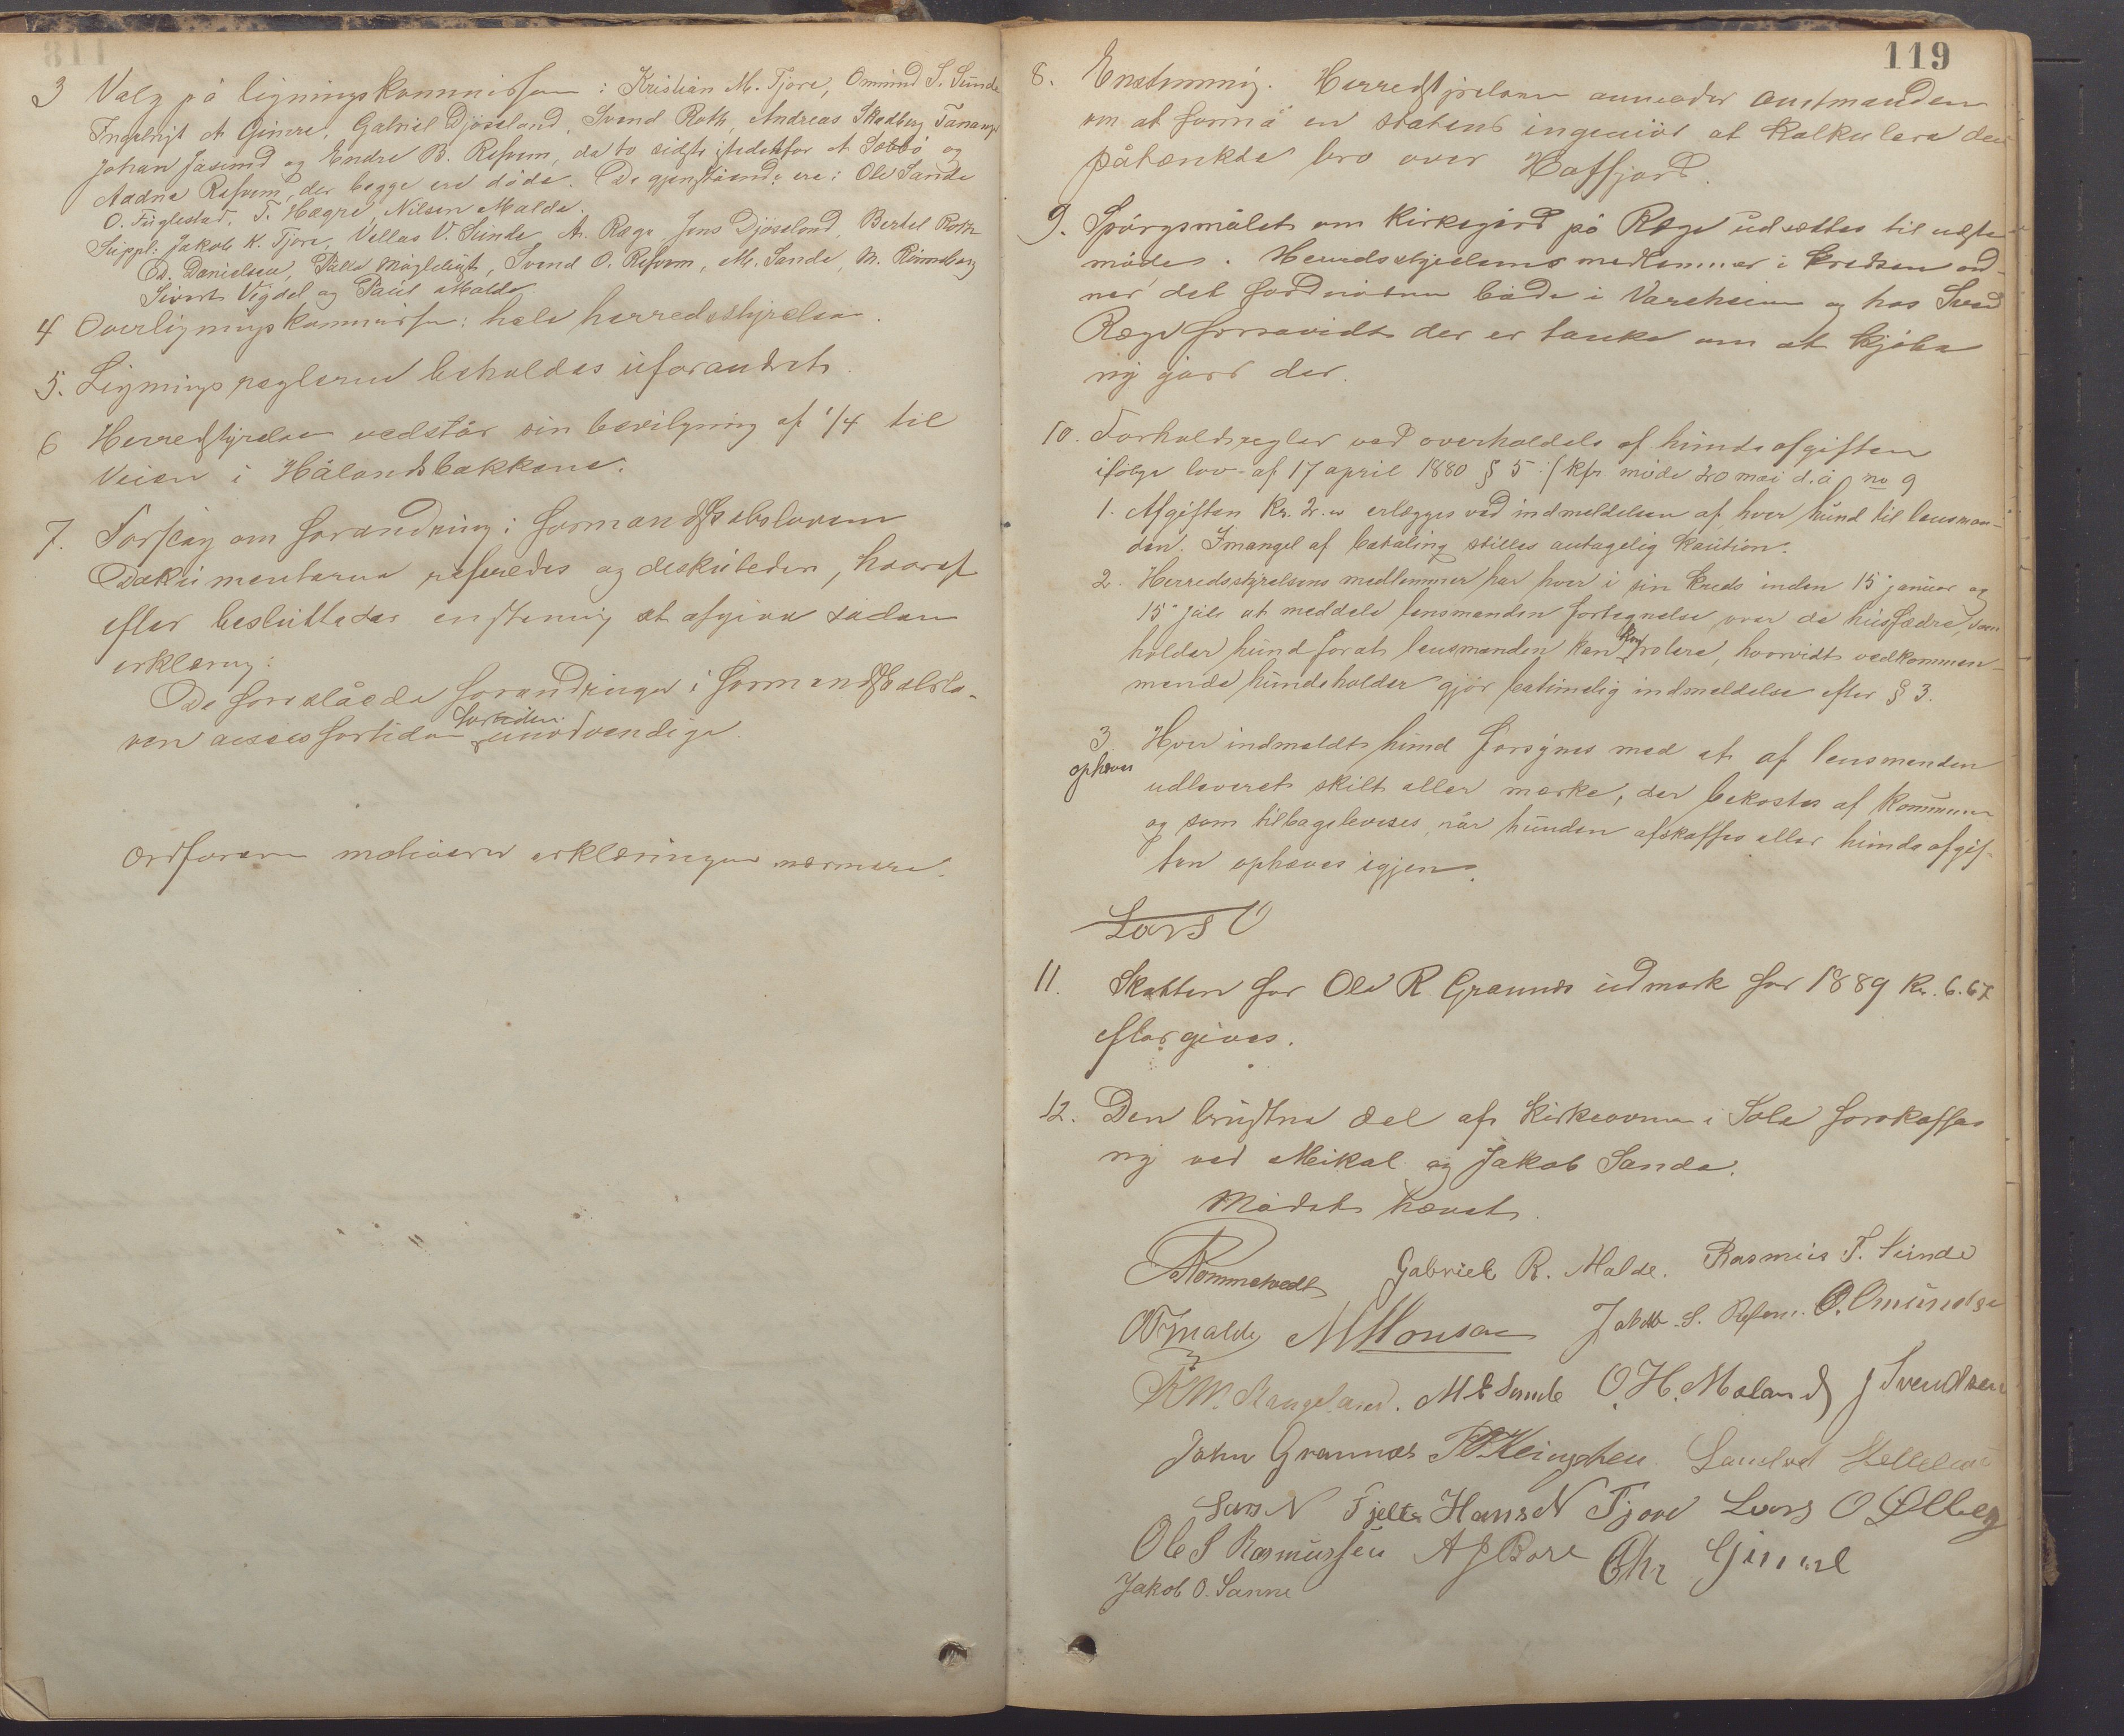 3 Valg på ligningskommission: Kristian M. Tjore, Ommund S. Sunde
Ingebrigt A Gimre, Gabriel Djöseland, Svend Roth, Andreas Skadberg Tananger
Johan Jåsund og Endre B. Refvem, de to sidste istedetfor A Sæbbö og
Aadne Refvem, der begge ere döde. De gjenstående ere: Ole Sande
O. Fuglestad, T. Hægre, Nilsen Malde.
Suppl: Jakob K. Tjore, Vellas V. Sunde, A. Ræge, Jens Djöseland, Bertel Roth
Ed. Danielsen, Tålle Myklebust, Svend O. Refvem, M. Sande, M. Rimmberg
Sivert Vigdel og Paul Malde
4 Overligningskommission: hele herredsstyrelsen.
5. Ligningsreglerne beholdes uforandret.
6 Herredsstyrelsen vedstår sin bevilgning af 1/4 til
Veien i Hålandsbakkene.
7. Forslag om forandring i formandskabsloven
Dokumenterne refereredes og diskuteredes, hvoraf
efter besluttedes enstemig at afgive sådan
erklæring:
De foreslåede forandringer i formandskabslo-
ven ansees for tiden unödvendige.
Ordföreren motiverer erklæringen nærmere.
118
119
8. Enstemmig. Herredstyrelsen anmoder amtmanden
om at formå en statens ingeniör at kalkulere den
påtænkte bro over Hafsfjord.
9. Spörgsmålet om kirkegård på Ræge udsættes til næste
möde. Herredsstyrelsens medlemmer i kredsen ord-
ner det fornödne både i Vareheim og hos Svend
Ræge forsåvidt der er tanke om at kjöbe
ny gård der.
10. Forholdsregler ved overholdelse af hundeafgiften
ifölge lov af 17 april 1880 § 5 : (kfr möde 20 mai d.å no 9
1. Afgiften Kr. 2. erlægges ved indmeldelsen af hver hund til lensman-
den. I mangel af betaling stilles antagelig kaution.
2. Herredsstyrelsens medlemmer har hver i sin kreds inden 15 januar og
15 juli at meddele lensmanden fortegnelse over de husfædre, som
holder hund forat lensmanden kan kontrolere, hvorvidt vedkommen-
mende hundeholder gjör betimelig indmeldelse efter § 3.
3 Hver indmeldt hund forsynes med et af lensmanden
ophæves
udleveret skilt eller mærke, der bekostes af kommunen
og som tilbageleveres når hunden afskaffes eller hundeafgif-
ten ophæves igjen.
Lars O
11. Skatten for Ole R Grannes udmark for 1889 Kr. 6.67
eftergives.
12. Den brustne del af kirkeovnen i Sole forskaffes
ny ved Mikal og Jakob Sande.
Mödet hævet.
Rommetvedt Gabriel R. Malde. Rasmus T. Sunde
OTMalde MMonsen Jakob S. Refvem. O. Omundsen
R.W. Haugeland. M E Sande O. H. Moland J Svendsen
John Grannes Sandved
Lars N Fjelte Hans N Tjore Lars O Ölberg
Ole S Rasmussen A J Bore Chr Gimre
Jakob O. Sanne